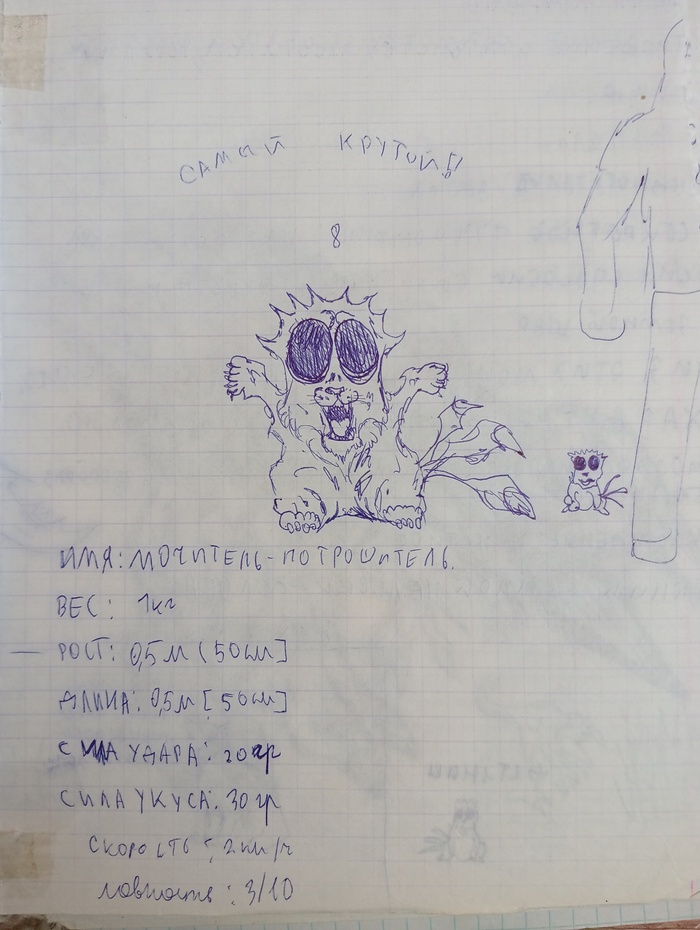 САМЫЙ КРУТОЙ!!
8
ИМЯ: МОЧИТЕЛЬ-ПОТРОШИТЕЛЬ.
ВЕС: 1кг
РОСТ: 0,5 м (50см]
ДЛИНА: 0,5м [50см]
СИЛА УДАРА: 20гр
СИЛА УКУСА: 30гр
СКОРОСТЬ: 2км/ч
ловкость: 3/10